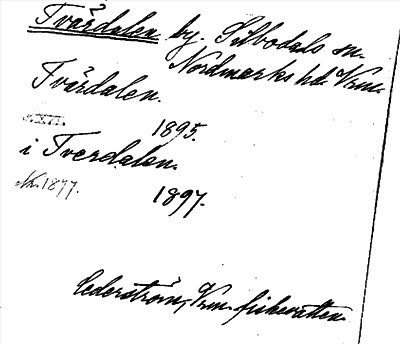 Tvärdalen by. Silbodals sn.
Nordmarks hd. Vrm.
Tvärdalen.
1895.
i Tverdalen.
1877.
1897.
Cederström, Vrm. fiskevatten.